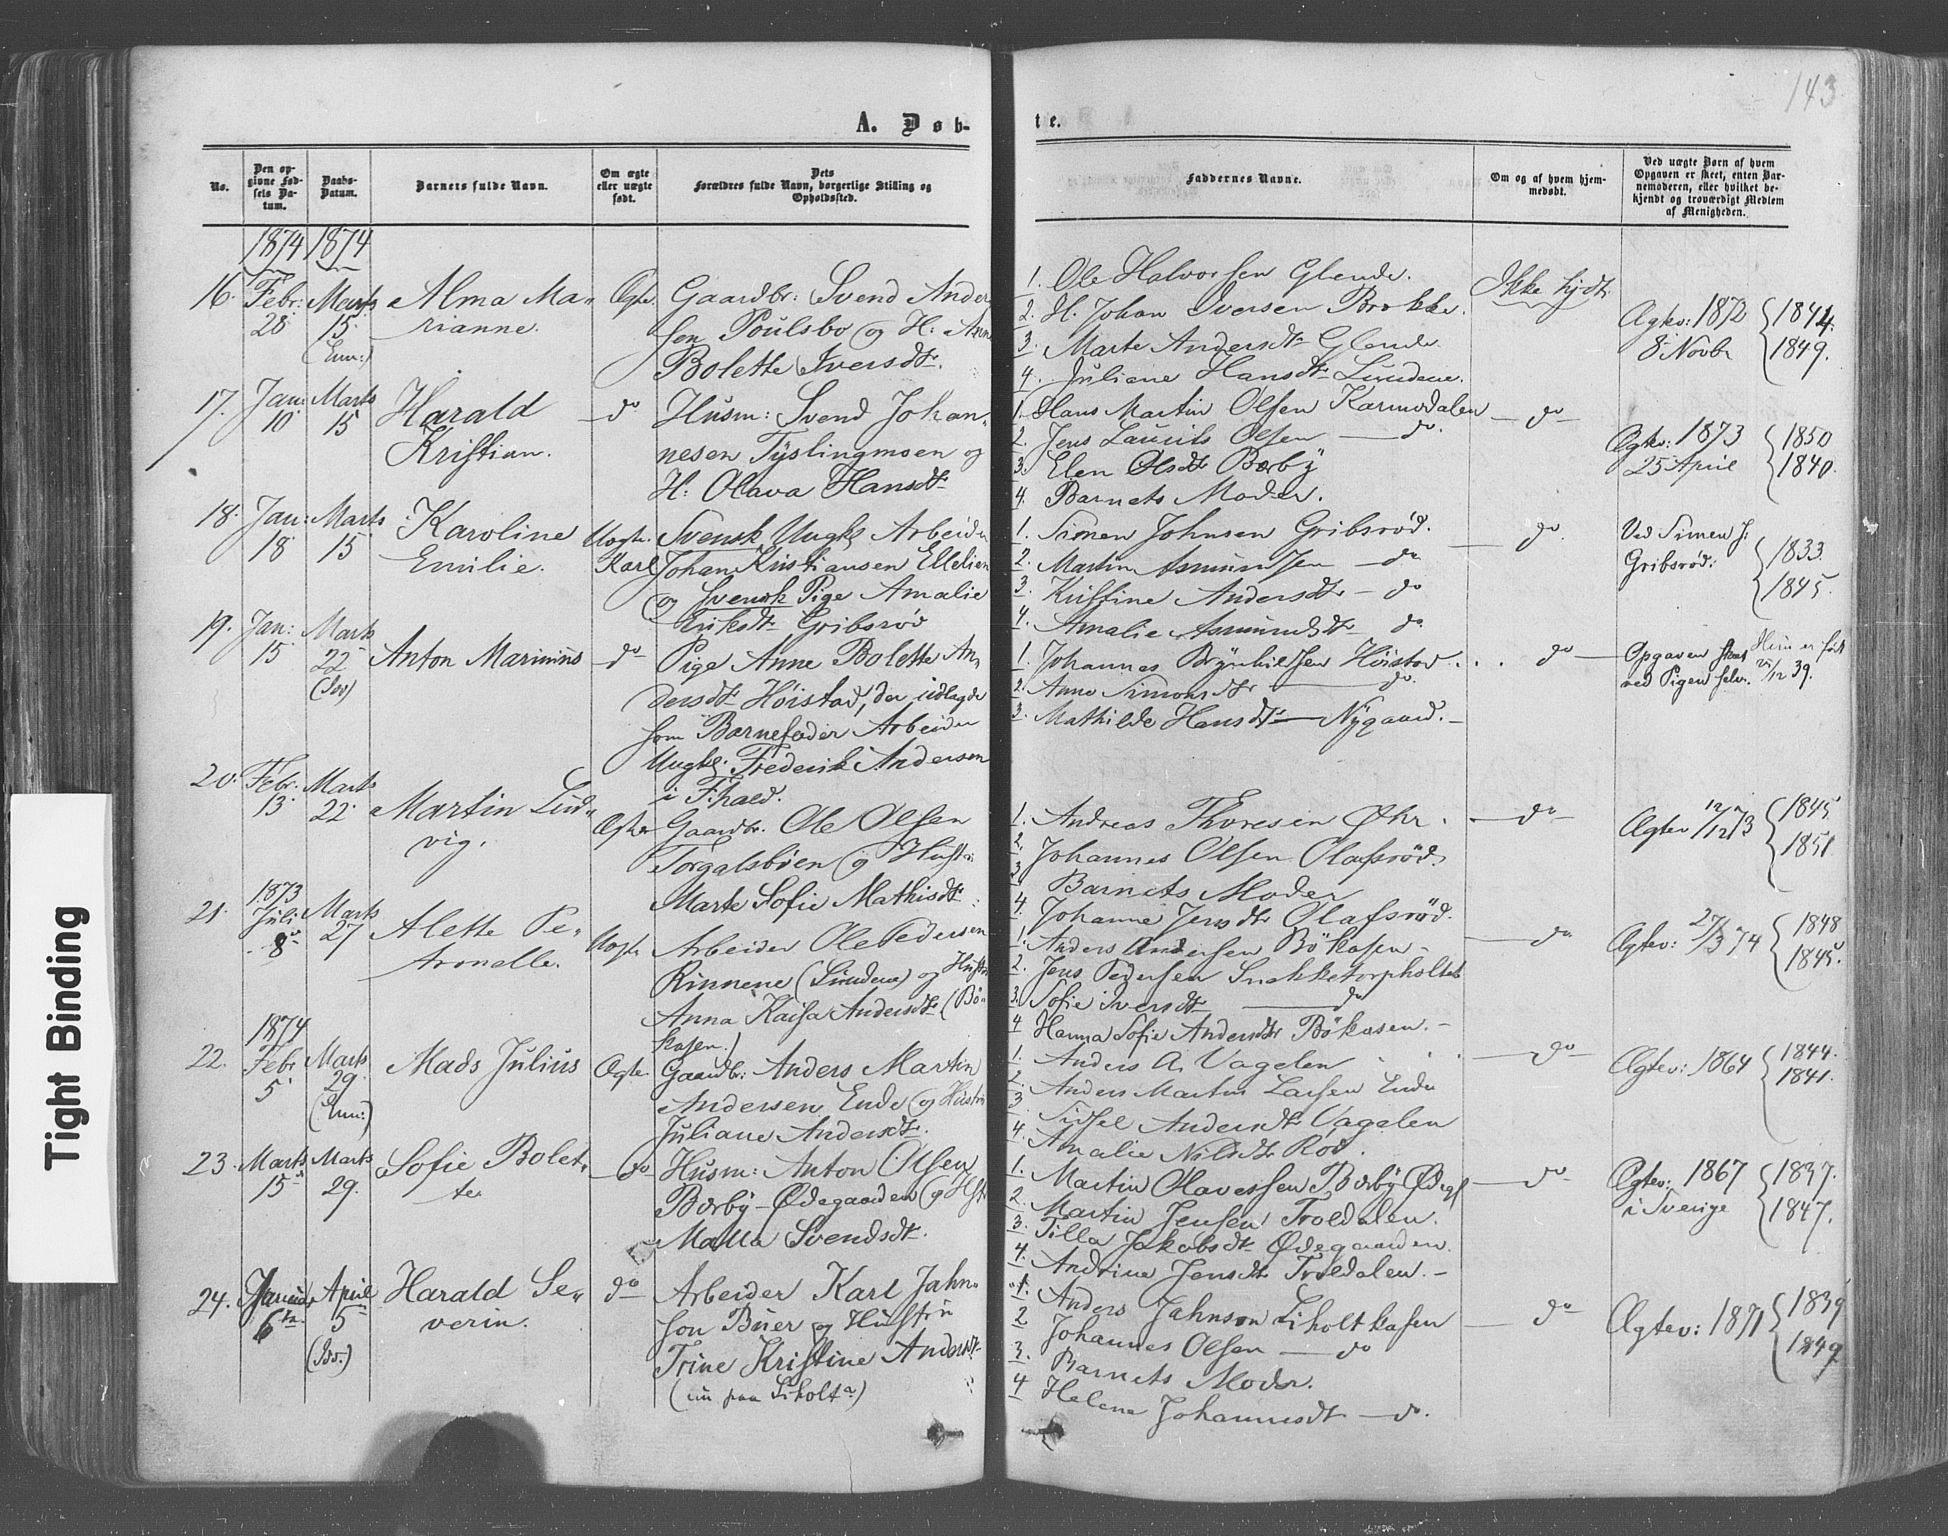 143
A. Døb-
te.
No.
Den op-
givne Fød-
sels Da-
tum.
Daabs-
Datum.
Barnets fulde Navn.
Om ægte
eller uægte
født.
Dets
Forældres fulde Navn, borgerlige Stilling og
Opholdssted.
Faddernes Navne.
Om og af hvem hjem-
medøbt.
Ved uægte Børn af hvem
Opgaven er skeet, enten Bar-
nemoderen, eller hvilket be-
kjendt og troværdigt Medlem
af Menigheden.
1874 1874
16. Febr: 28 Marts 15.
Alma Ma-
rianne.
Ægte.
Gaardbr: Svend Ander
sen Poulsbo og H: Anne
Bolette Iversdt.
1. Ole Halvorsen Glende.
2. H. Johan Iversen Brokke.
3. Marte Andersdt Glende
4. Juliane Hansdt Lundene.
Ikke hjdt.
Ægtev: 1872
8 Novbr
1844.
1849.
17. Jan: 10 Marts 15
Harald
Kristian.
do
Husm: Svend Johan-
nesen Tyslingmoen og
H: Olava Hansdt
1. Hans Martin Olsen Karmodalen
2. Jens Laurits Olsen do.
3. Elen Olsdt Bærby
4. Barnets Moder.
do
Ægtev: 1873
25 April
1850
1840.
18. Jan: 18 Marts 15
Karoline
Emilie.
Uægte.
Svensk Ungk Arbeider
Johan Kristiansen Ellelien
og Svensk Pige Amalie
Eriksdt Gribsrød
1. Simen Johnsen Gribsrød.
2. Martin Asmundsen do
3. Kristine Andersdt do
4. Amalie Asmundsdt do
do.
Ved Simen J:
Gribsrød.
1833
1845.
19. Jan: 15 Marts 22
Anton Marinius
do
Pige Anne Bolette An-
dersdt Høistad, der udlagde
som Barnefader Arbeider
Ungk. Frederik Andersen
i F:hald.
1. Johannes Brynhildsen Høistad
2. Anne Simonsdt do.
3. Mathilde Hansdt Nygaard.
do
Opgaven skeet Hun er født
ved Pigen selv. 21/12 39.
20. Febr. 13. Marts 22.
Martin Lud-
vig.
Ægte
Gaardbr. Ole Olsen
Torgalsbøen og Hustr:
Marte Sofie Mathisdt
1. Andreas Thoresen Øhr.
2. Johannes Olsen Olafsrød.
3. Barnets Moder
4. Johanne Jensdt Olafsrød.
do
Ægtev 12/12 73
1845
1851
1873
21. Juli 8 Marts 27
Alette Pe-
tronelle.
Uægte.
Arbeider Ole Pedersen
Rinnene (Lundene) og Hustru
Anna Kaisa Andersdt (Bö-
kasen.)
1. Anders Andersen Bökasen
2. Jens Pedersen Snekketorpholtet
3. Sofie Iversdt do
4 Hanna Sofie Andersdt Bökasen.
do
Ægtev: 27/3 74
1848
1845.
1874
22. Febr 5 Marts 29.
Mads Julius
Ægte.
Gaardbr: Anders Martin
Andersen Ende og Hustru
Juliane Andersdt.
1. Anders A. Vagelen
2. Anders Martin Larsen Ende
3 Sidsel Andersdt Vagelen
4. Amalie Nilsdt Rød.
do
Ægtev: 1864
1844.
1841.
23. Marts 15 Marts 29.
Sofie Bolet-
te
do
Husm: Anton Olsen
Bærby-Ødegaarden og Hstr
Malla Svendsdt.
1. Martin Olavessen Bærby Ødeg
2. Martin Jensen Troldalen.
3. Tilla Jakobsdt Ødegaarden.
4. Andrine Jensdt Troldalen.
do
Ægtev: 1867
i Sverige
1837.
1847.
24. Januar 6te April 5
Harald Se-
verin.
do
Arbeider Karl Jahn-
son Buer og Hustru
Trine Kristine Andersdt
(nu paa Liholt)
1. Anders Jahnson Liholtkasen
2 Johannes Olsen do
3. Barnets Moder.
4 Helene Johannesdt do.
do
Ægtev: 1871
1839
1849
Tight Binding